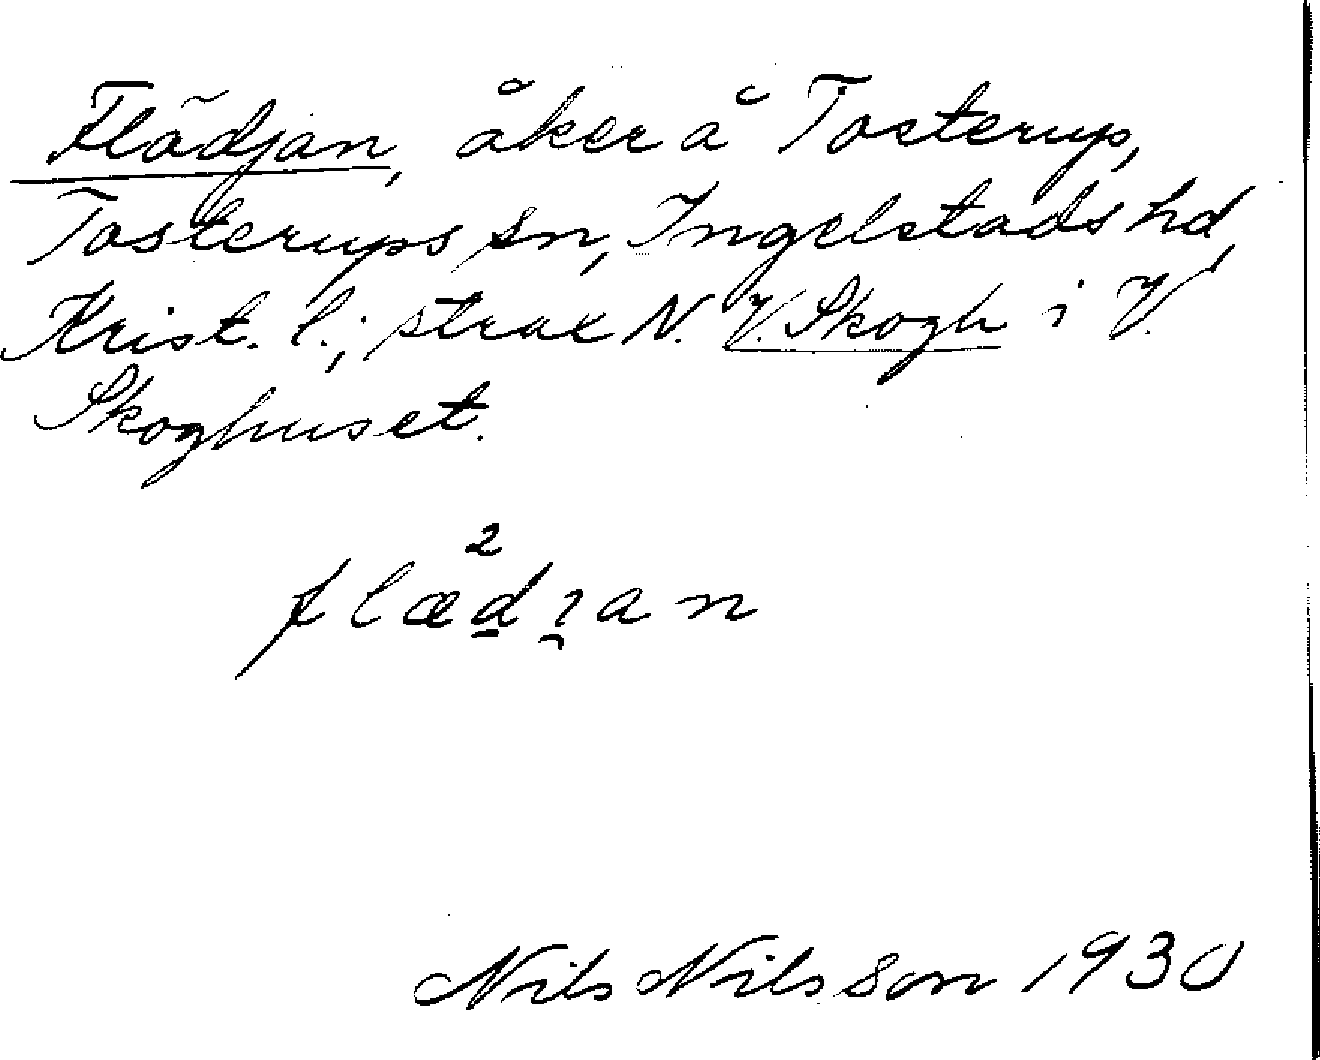 Flädjan, åker å Tosterup,
Tosterups sn, Ingelstads hd,
Krist. l.; strax N. V. Skogh i V.
Skoghuset.
2
flæd̲ı̯an
Nils Nilsson 1930